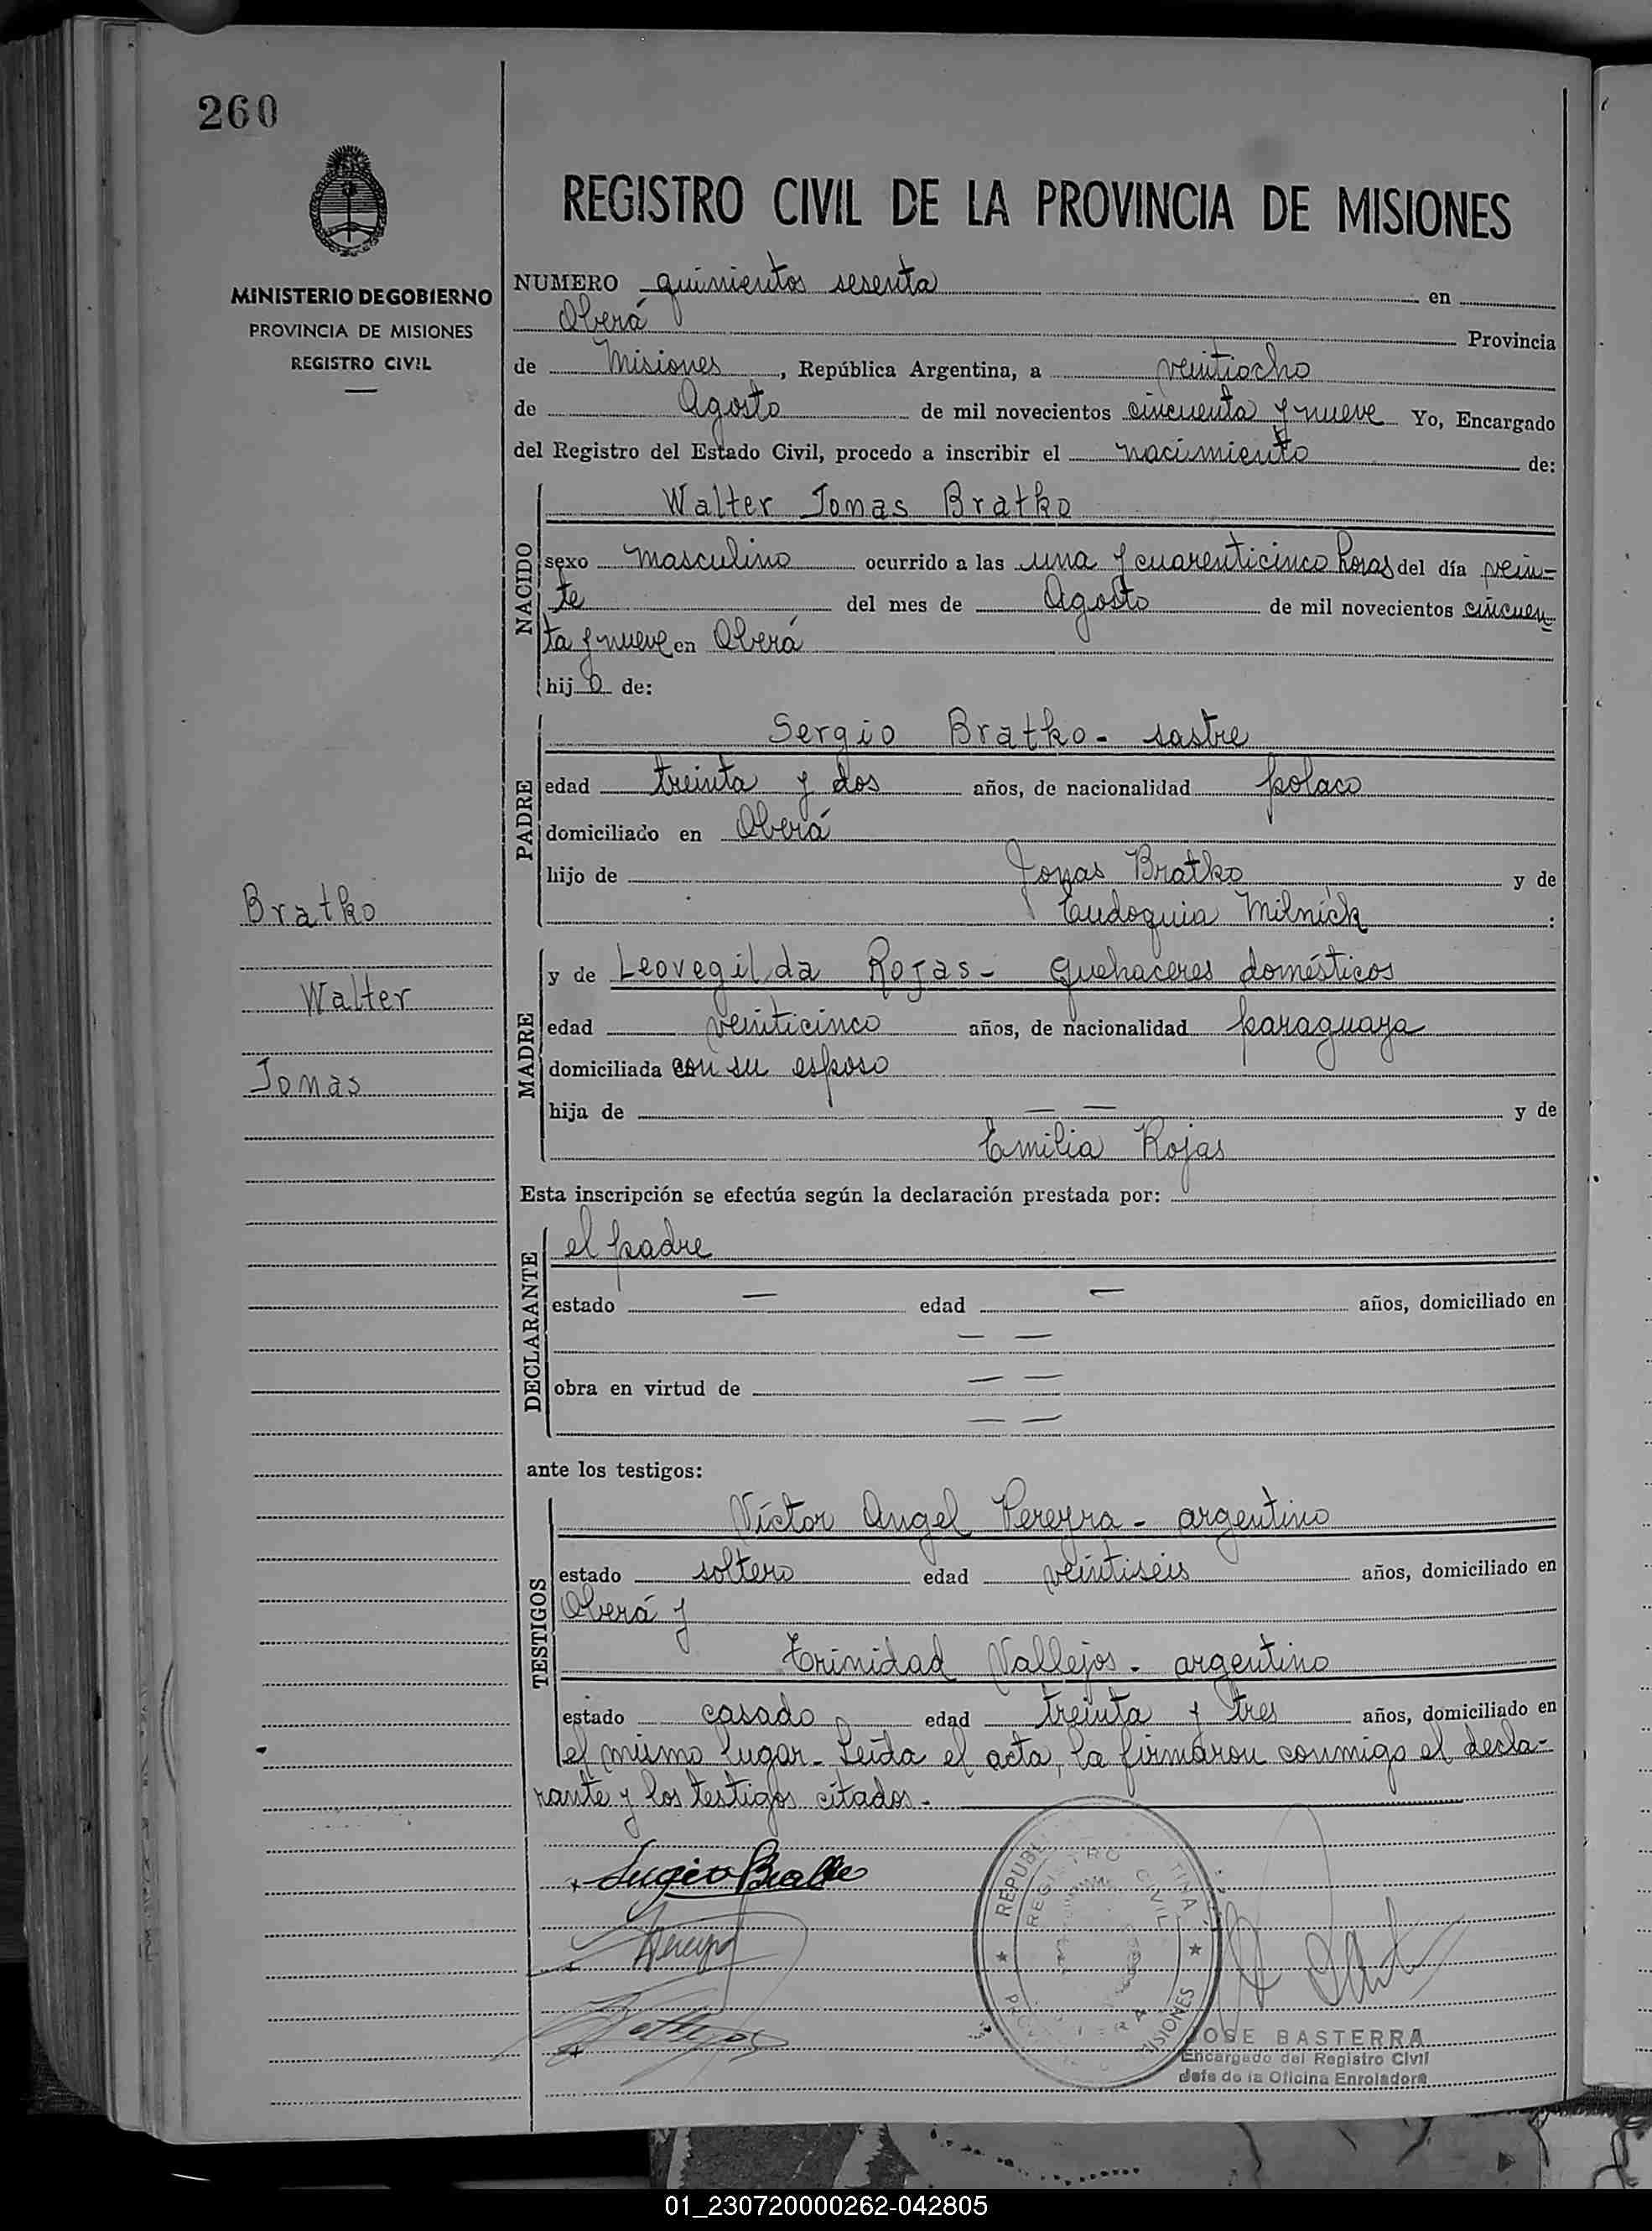 260
MINISTERIO DE GOBIERNO
PROVINCIA DE MISIONES
REGISTRO CIVIL
REGISTRO CIVIL DE LA PROVINCIA DE MISIONES
NUMERO quinientos sesenta en
Oberá Provincia
de Misiones, República Argentina, a veintiocho
de Agosto de mil novecientos cincuenta y nueve Yo, Encargado
del Registro del Estado Civil, procedo a inscribir el nacimiento de:
NACIDO
Walter Jonas Bratko
sexo masculino ocurrido a las una y cuarenticinco horas del día vein-
te del mes de Agosto de mil novecientos cincuen-
ta y nueve en Oberá
hijo de:
PADRE
Sergio Bratko - sastre
edad treinta y dos años, de nacionalidad polaco
domiciliado en Oberá
hijo de Jonas Bratko y de
Eudoquia Milnick :
Bratko
Walter
Jonas
MADRE
y de Leovegilda Rojas - quehaceres domésticos
edad veinticinco años, de nacionalidad paraguaya
domiciliada con su esposo
hija de — — y de
Emilia Rojas
Esta inscripción se efectúa según la declaración prestada por:
DECLARANTE
el padre
estado — edad — años, domiciliado en
— —
obra en virtud de — —
— —
ante los testigos:
TESTIGOS
Víctor Angel Pereyra - argentino
estado soltero edad veintiseis años, domiciliado en
Oberá y
Trinidad Vallejos - argentino
estado casado edad treinta y tres años, domiciliado en
el mismo lugar - Leída el acta, la firmaron conmigo el decla-
rante y los testigos citados -
REGISTRO CIVIL
MISIONES
JOSE BASTERRA
Encargado del Registro Civil
Jefe de la Oficina Enroladora
01_230720000262-042805